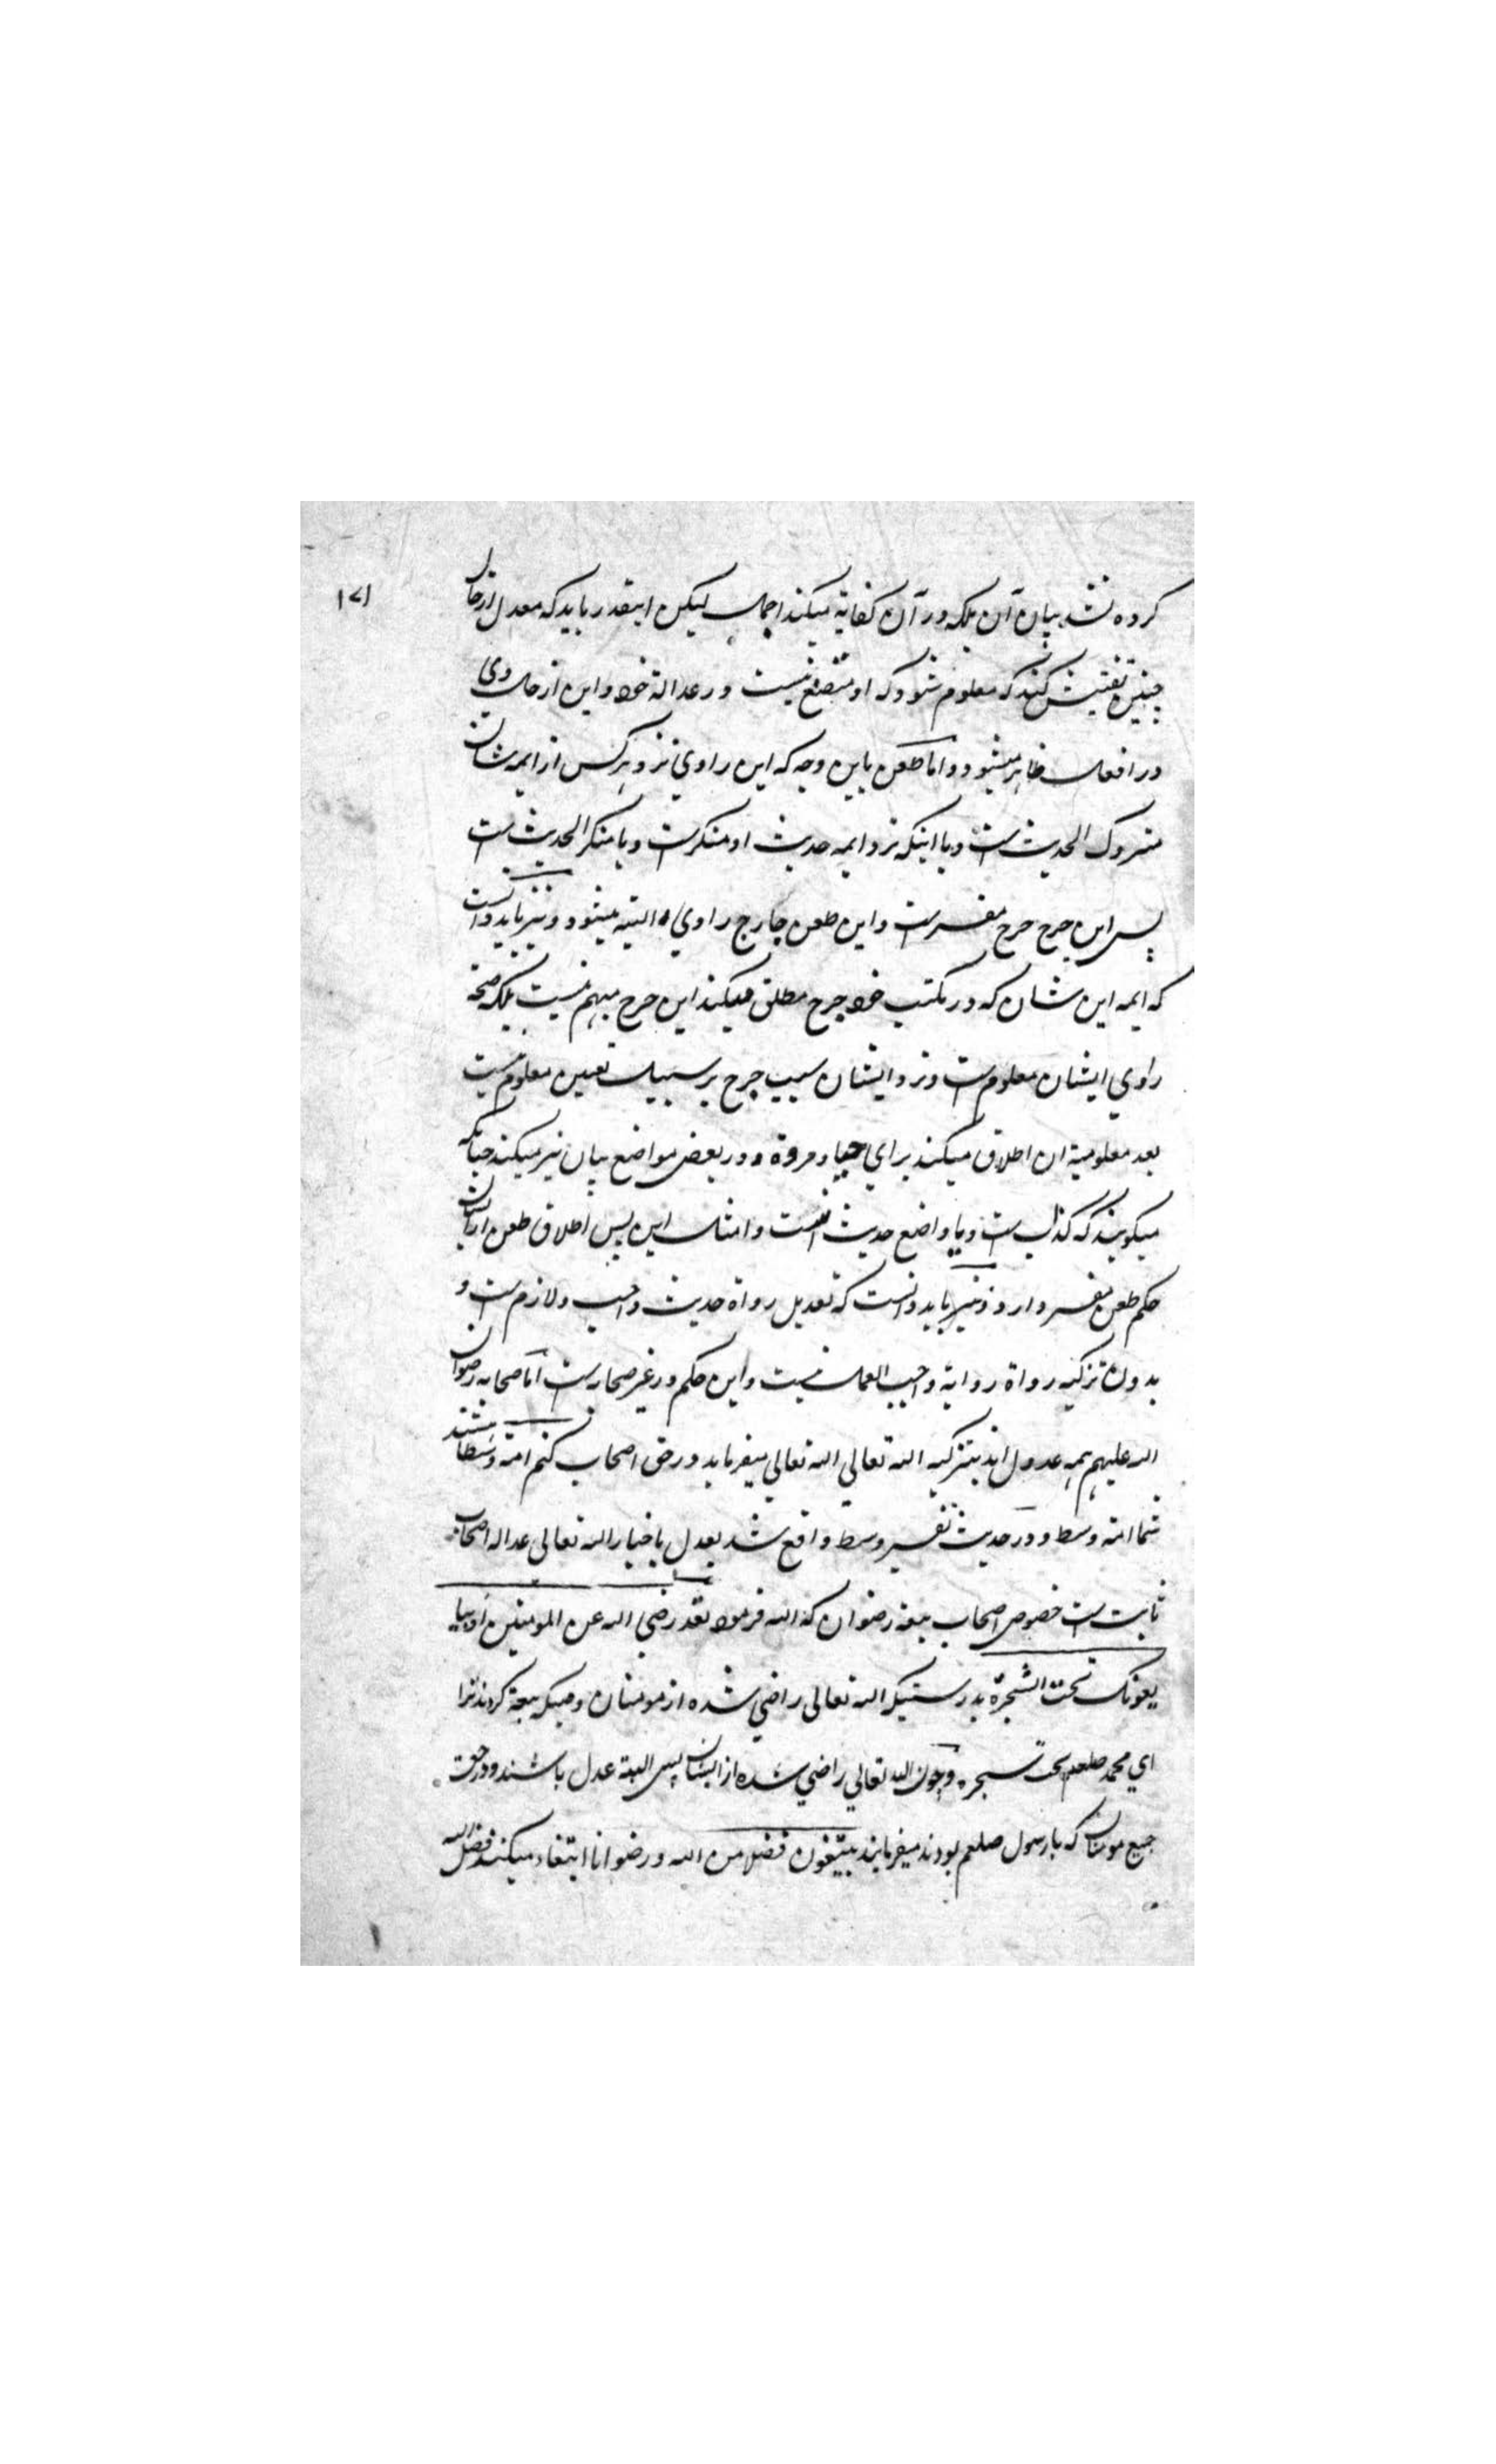 ۱۷۱
کرده نشد بیان آن بلکه در آن کفایه میکند اجمال لیکن اینقدر باید که معدل از حال
چنین تفتیش کند که معلوم شود که او متصنع نیست در عدالة خود و این از حال وی
در افعال ظاهر میشود و اما طعن باین وجه که این راوي نزد هر کس از ایمه شان
متروک الحدیث است و یا اینکه نزد ایمه حدیث او منکرست و یا منکر الحدیث است
پس این جرح جرح مفسرست و این طعن جارح راوي البته میشود و نیز باید دانست
که ایمه این شان که در کتب خود جرح مطلق میکنند این جرح مبهم نیست بلکه
راوي ایشان معلوم است و نزد ایشان سبب جرح بر سبیل تعین معلوم است
بعد معلومیة ان اطلاق میکنند براي حیا و مروة و در بعض مواضع بیان نیز میکنند چنانکه
میکویند که کذاب است و یا واضع حدیث است و امثال این پس اطلاق طعن ازیشان
حکم طعن مفسر دارد و نیز باید دانست که تعدیل رواة حدیث واجب و لازم است و
بدون تزکیه رواة روایة واجب العمل نیست و این حکم در غیر صحابه است اما صحابه رضوان
الله علیهم همه عدول اند بتزکیه الله تعالي الله تعالي میفرماید در حق اصحاب کنتم امة وسطا هستند
شما امة وسط و در حدیث تفسیر وسط واقع شد بعدل باخبار الله تعالی عداله اصحاب
ثابت است خصوص اصحاب بیعة رضوان که الله فرمود لقد رضي الله عن المومنین اذ یبا
یعونک تحت الشجرة بدرستیکه الله تعالی راضي شده از مومنان وقتیکه بیعة کردند ترا
اي محمد صلعم تحت شجره و چون الله تعالي راضي شده از ایشان پس البته عدل باشند و در حق
جمیع مومنان که با رسول صلعم بودند میفرماید یبتغون فضلا من الله و رضوانا ابتغاء میکنند فضل الله